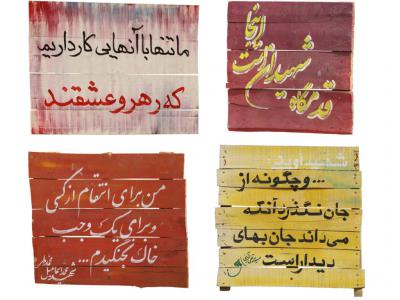 ما تنها با آنهایی کار داریم
که رهرو عشقند
اینجا
قدمگاه شهیدان است
من برای انتقام از کسی
و برای یک وجب
خاک نجنگیدم...
شهید آوینی
...و چگونه از
جان نگذرد آنکه
می‌داند جان بهای
دیدار است